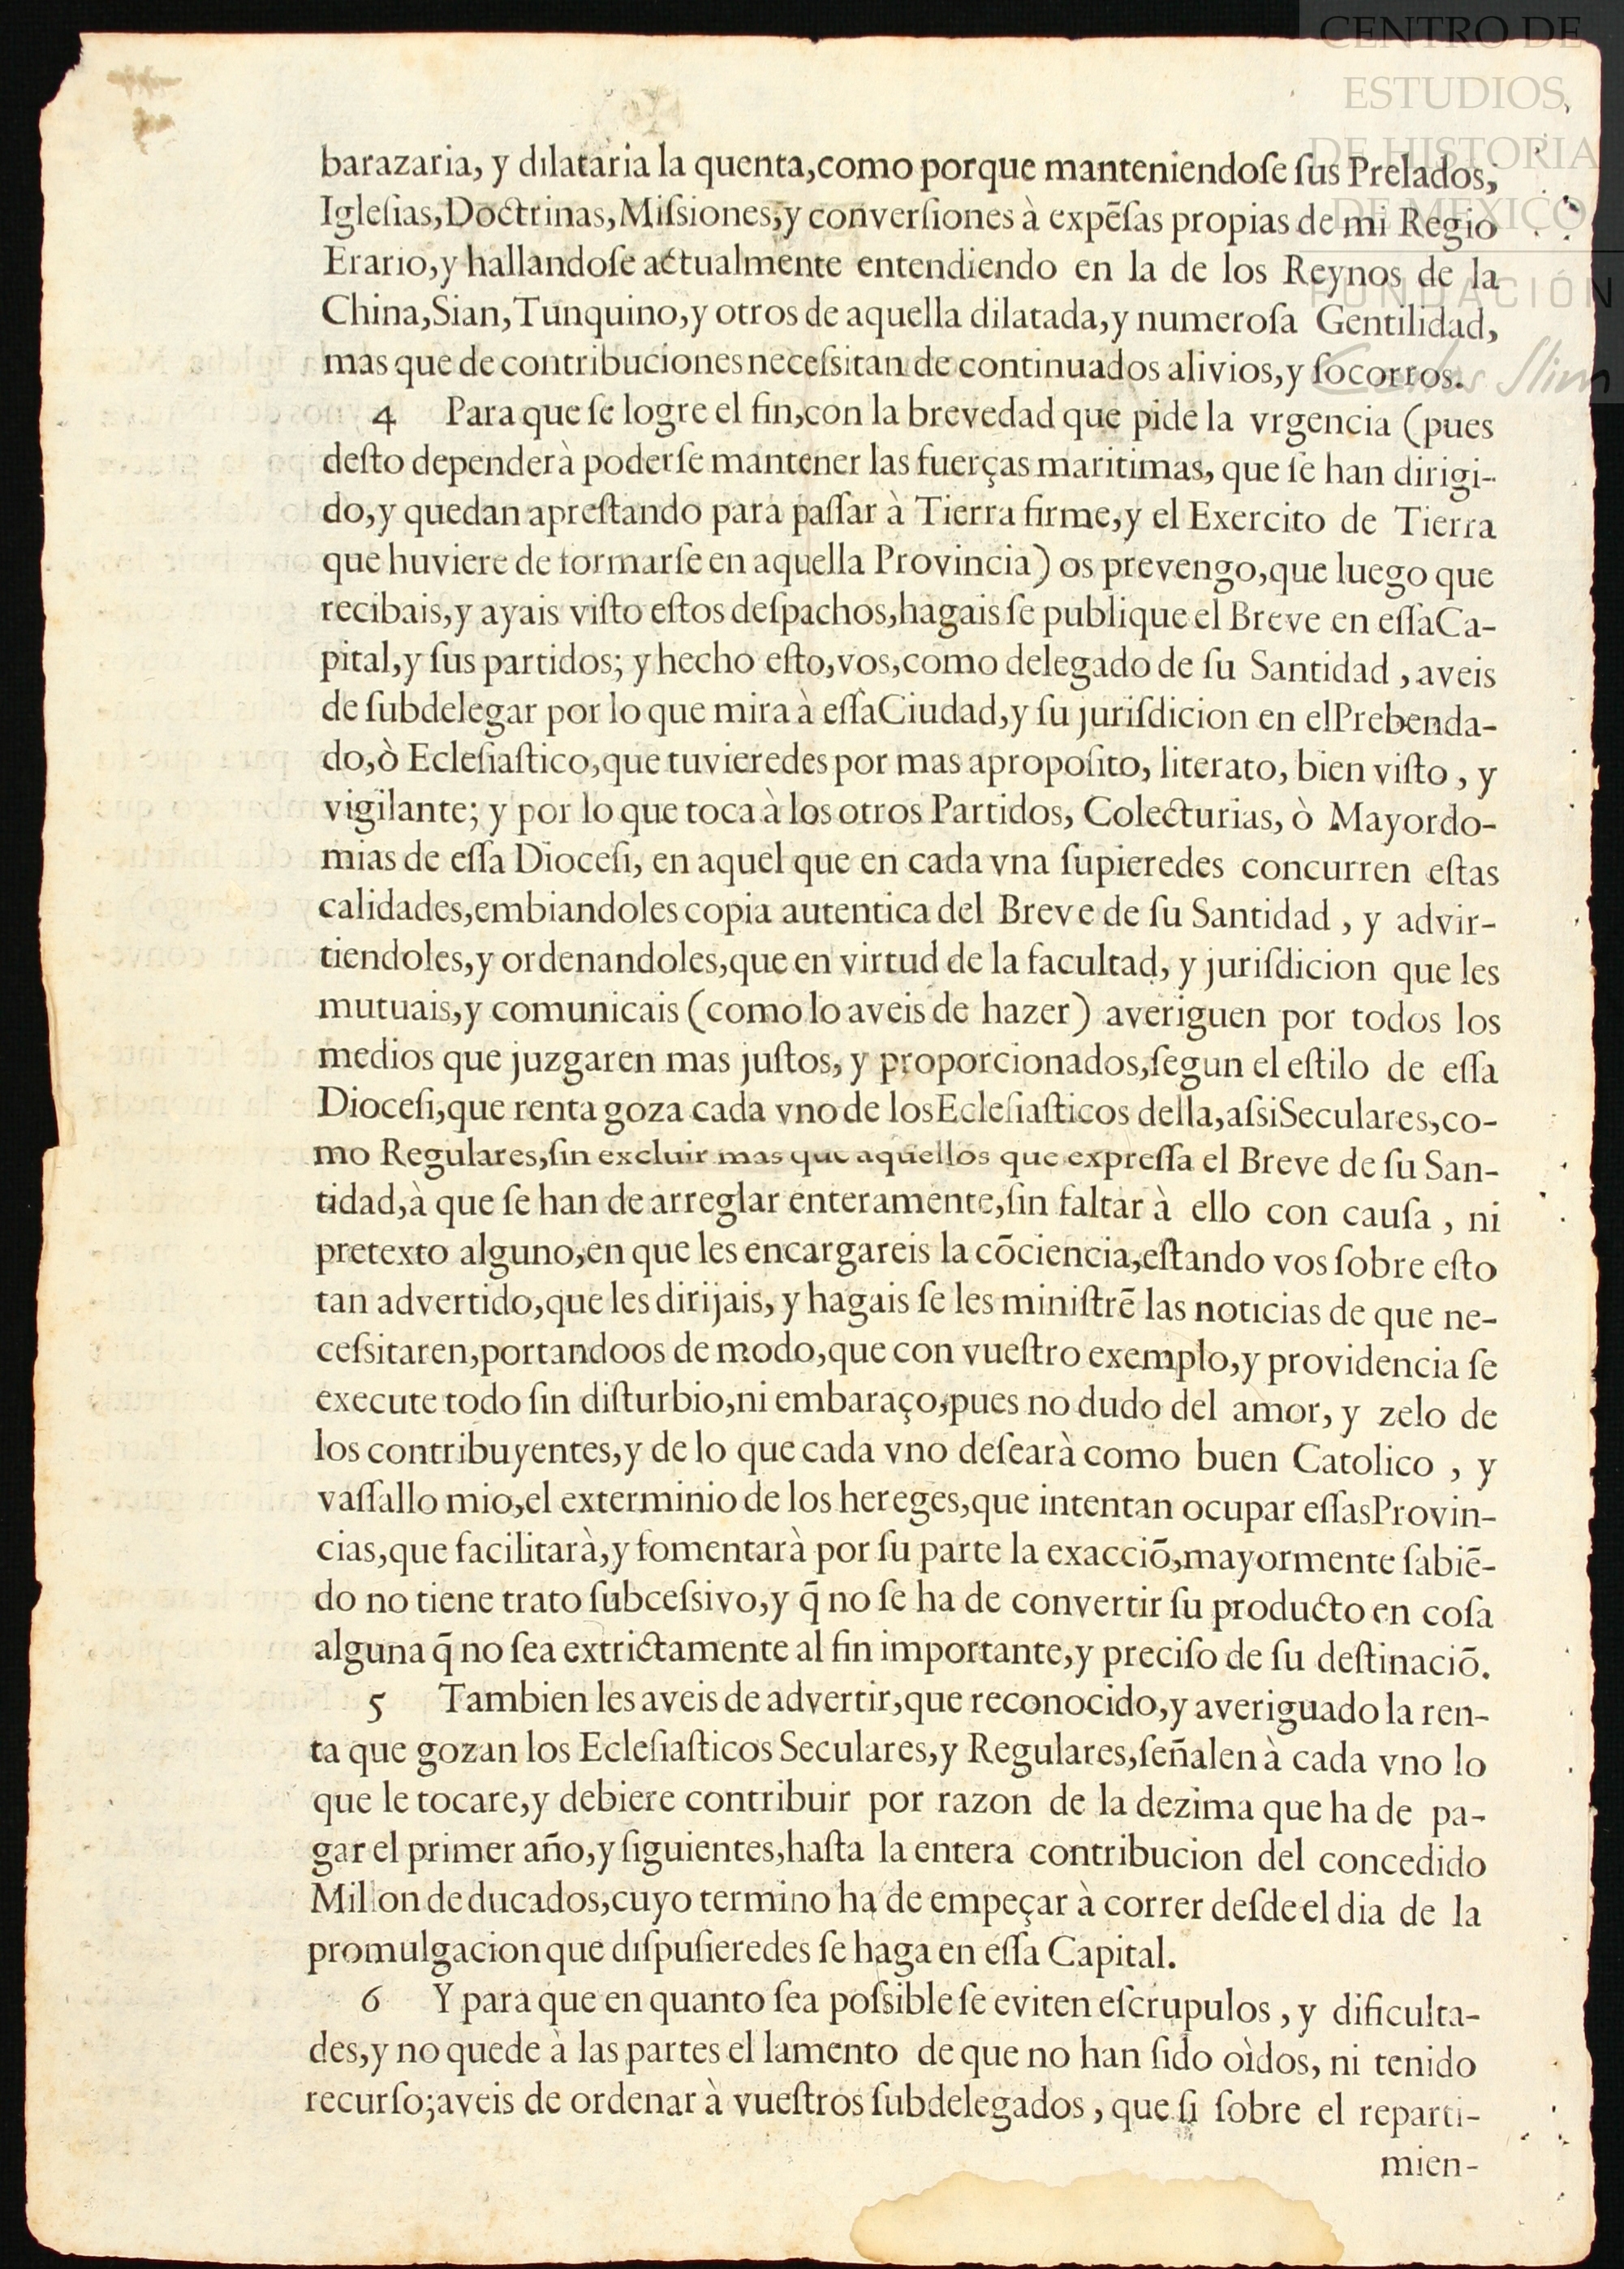 CENTRO DE
ESTUDIOS
DE HISTORIA
DE MEXICO
FUNDACIÓN
Carlos Slim
barazaria, y dilataria la quenta,como porque manteniendoſe ſus Prelados,
Igleſias,Doctrinas,Miſsiones,y converſiones à expẽſas propias de mi Regio
Erario,y hallandoſe actualmente entendiendo en la de los Reynos de la
China,Sian,Tunquino,y otros de aquella dilatada,y numeroſa Gentilidad,
mas que de contribuciones neceſsitan de continuados alivios,y ſocorros.
4 Para que ſe logre el fin,con la brevedad que pide la vrgencia (pues
deſto dependerà poderſe mantener las fuerças maritimas, que ſe han dirigi-
do,y quedan apreſtando para paſſar à Tierra firme,y el Exercito de Tierra
que huviere de formarſe en aquella Provincia) os prevengo,que luego que
recibais,y ayais viſto eſtos deſpachos,hagais ſe publique el Breve en eſſaCa-
pital,y ſus partidos; y hecho eſto,vos,como delegado de ſu Santidad , aveis
de ſubdelegar por lo que mira à eſſaCiudad,y ſu juriſdicion en elPrebenda-
do,ò Ecleſiaſtico,que tuvieredes por mas apropoſito, literato, bien viſto , y
vigilante; y por lo que toca à los otros Partidos, Colecturias, ò Mayordo-
mias de eſſa Dioceſi, en aquel que en cada vna ſupieredes concurren eſtas
calidades,embiandoles copia autentica del Breve de ſu Santidad , y advir-
tiendoles,y ordenandoles,que en virtud de la facultad, y juriſdicion que les
mutuais,y comunicais (como lo aveis de hazer) averiguen por todos los
medios que juzgaren mas juſtos, y proporcionados,ſegun el eſtilo de eſſa
Dioceſi,que renta goza cada vno de losEcleſiaſticos della,aſsiSeculares,co-
mo Regulares,ſin excluir mas que aquellos que expreſſa el Breve de ſu San-
tidad,à que ſe han de arreglar enteramente,ſin faltar à ello con cauſa , ni
pretexto alguno,en que les encargareis la cõciencia,eſtando vos ſobre eſto
tan advertido,que les dirijais, y hagais ſe les miniſtrẽ las noticias de que ne-
ceſsitaren,portandoos de modo,que con vueſtro exemplo,y providencia ſe
execute todo ſin diſturbio,ni embaraço,pues no dudo del amor, y zelo de
los contribuyentes,y de lo que cada vno deſearà como buen Catolico , y
vaſſallo mio,el exterminio de los hereges,que intentan ocupar eſſasProvin-
cias,que facilitarà,y fomentarà por ſu parte la exacciõ,mayormente ſabiẽ-
do no tiene trato ſubceſsivo,y q̃ no ſe ha de convertir ſu producto en coſa
alguna q̃ no ſea extrictamente al fin importante,y preciſo de ſu deſtinaciõ.
5 Tambien les aveis de advertir,que reconocido,y averiguado la ren-
ta que gozan los Ecleſiaſticos Seculares,y Regulares,ſeñalen à cada vno lo
que le tocare,y debiere contribuir por razon de la dezima que ha de pa-
gar el primer año,y ſiguientes,haſta la entera contribucion del concedido
Millon de ducados,cuyo termino ha de empeçar à correr deſde el dia de la
promulgacion que diſpuſieredes ſe haga en eſſa Capital.
6 Y para que en quanto ſea poſsible ſe eviten eſcrupulos , y dificulta-
des,y no quede à las partes el lamento de que no han ſido oìdos, ni tenido
recurſo;aveis de ordenar à vueſtros ſubdelegados , que ſi ſobre el reparti-
mien-